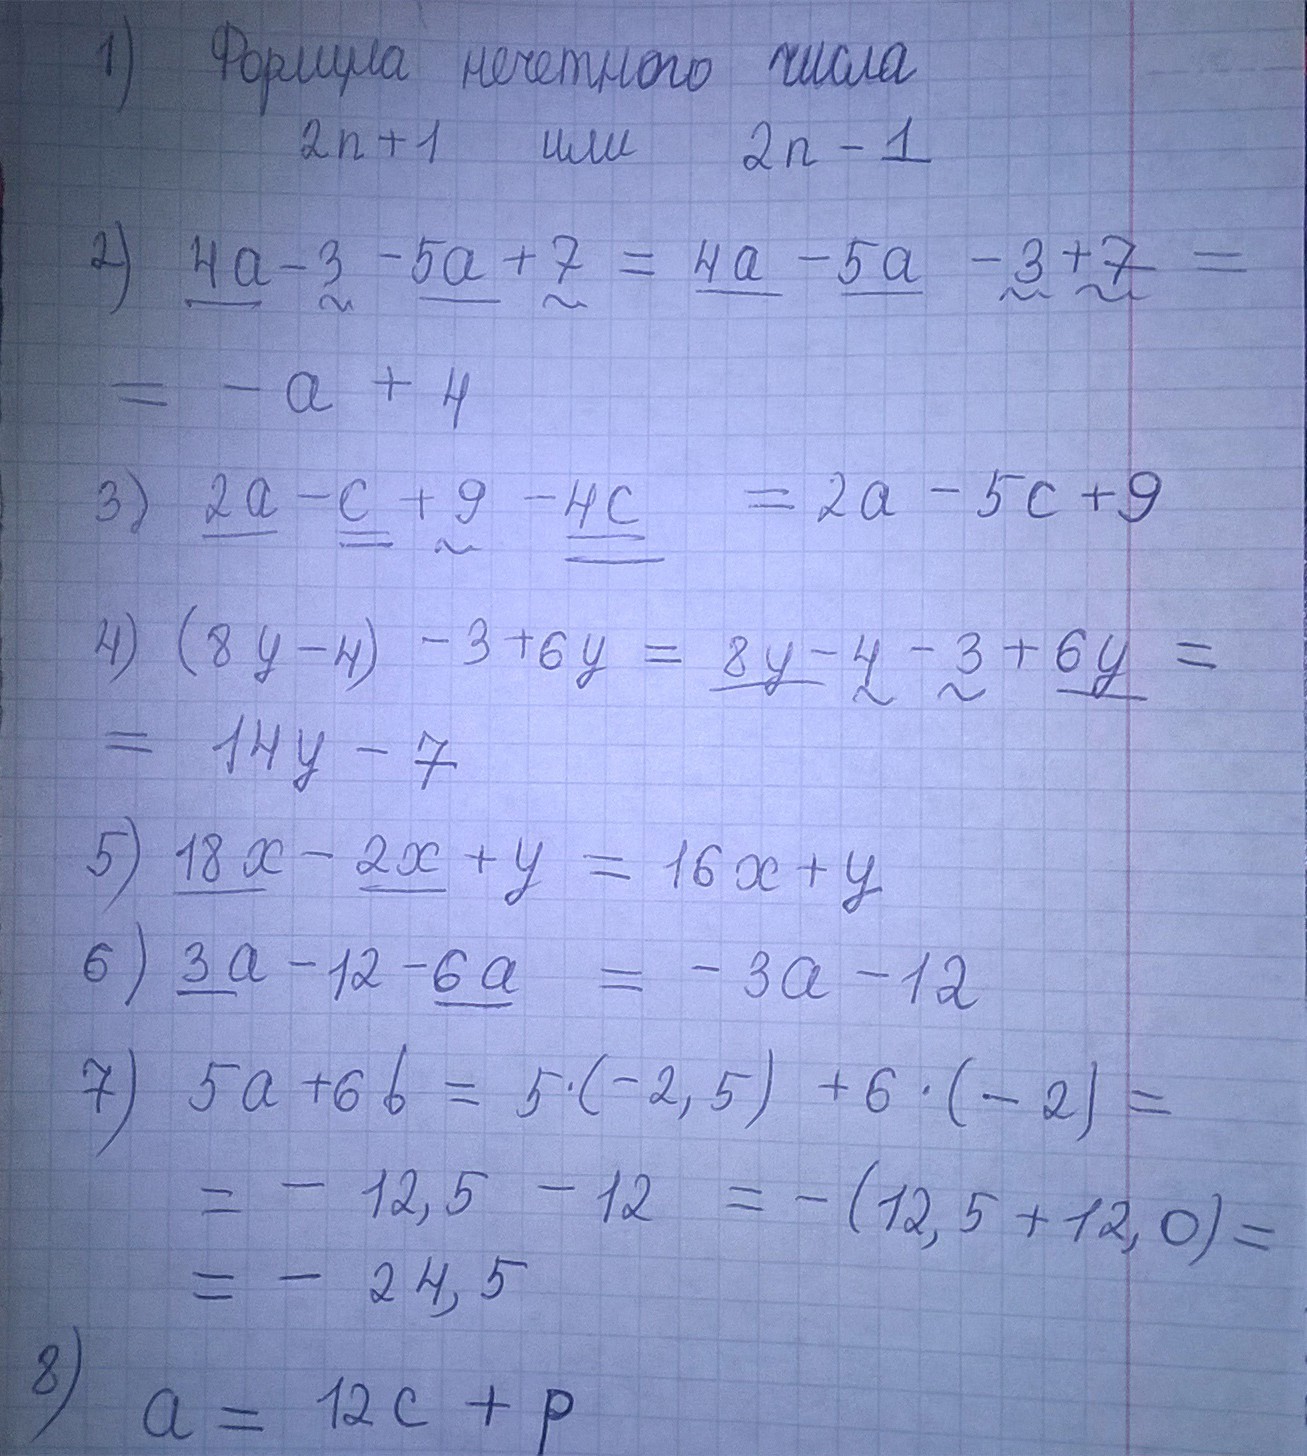 1) Формула нечетного числа
2n+1 или 2n-1
2) 4a-3-5a+7=4a-5a-3+7=
= -a+4
3) 2a-c+9-4c =2a-5c+9
4) (8y-4)-3+6y=8y-4-3+6y=
= 14y-7
5) 18x-2x+y=16x+y
6) 3a-12-6a = -3a-12
7) 5a+6b=5·(-2,5)+6·(-2)=
= -12,5-12 = -(12,5+12,0)=
= -24,5
8) a=12c+p